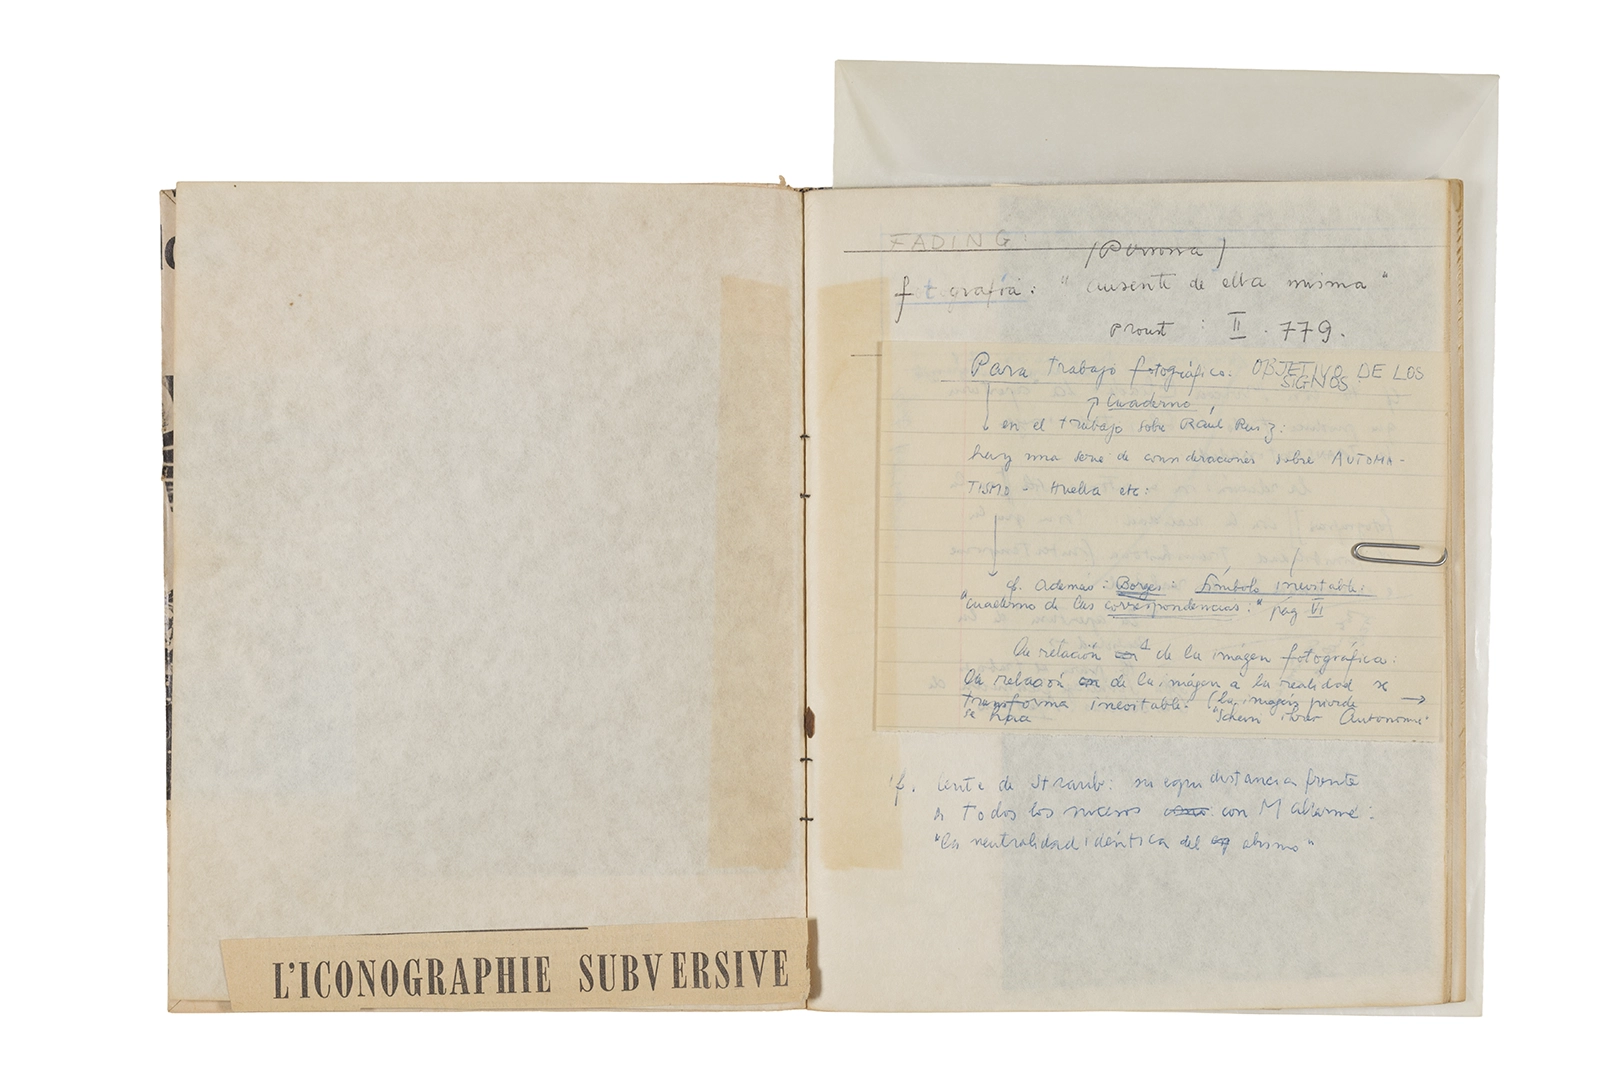 L'ICONOGRAPHIE SUBVERSIVE
FADING:
fotografía: "ausente de ella misma"
Proust : II . 779.
Para trabajo fotográfico: OBJETIVO DE LOS
SIGNOS
Cuaderno
en el trabajo sobre Raúl Ruiz:
hay una serie de consideraciones sobre AUTOMA-
TISMO - Huella etc:
cf. además: Borges: Símbolo inevitable:
"cuaderno de las correspondencias:" pág VI
La relación de la imágen fotográfica:
la relación de la imágen a la realidad se
transforma inevitable. (la imágen pierde →
se hace "Schein ihrer Autonomie"
cf. lente de Straub: su equidistancia frente
a todos los sucesos con Mallarmé:
"la neutralidad idéntica del abismo"